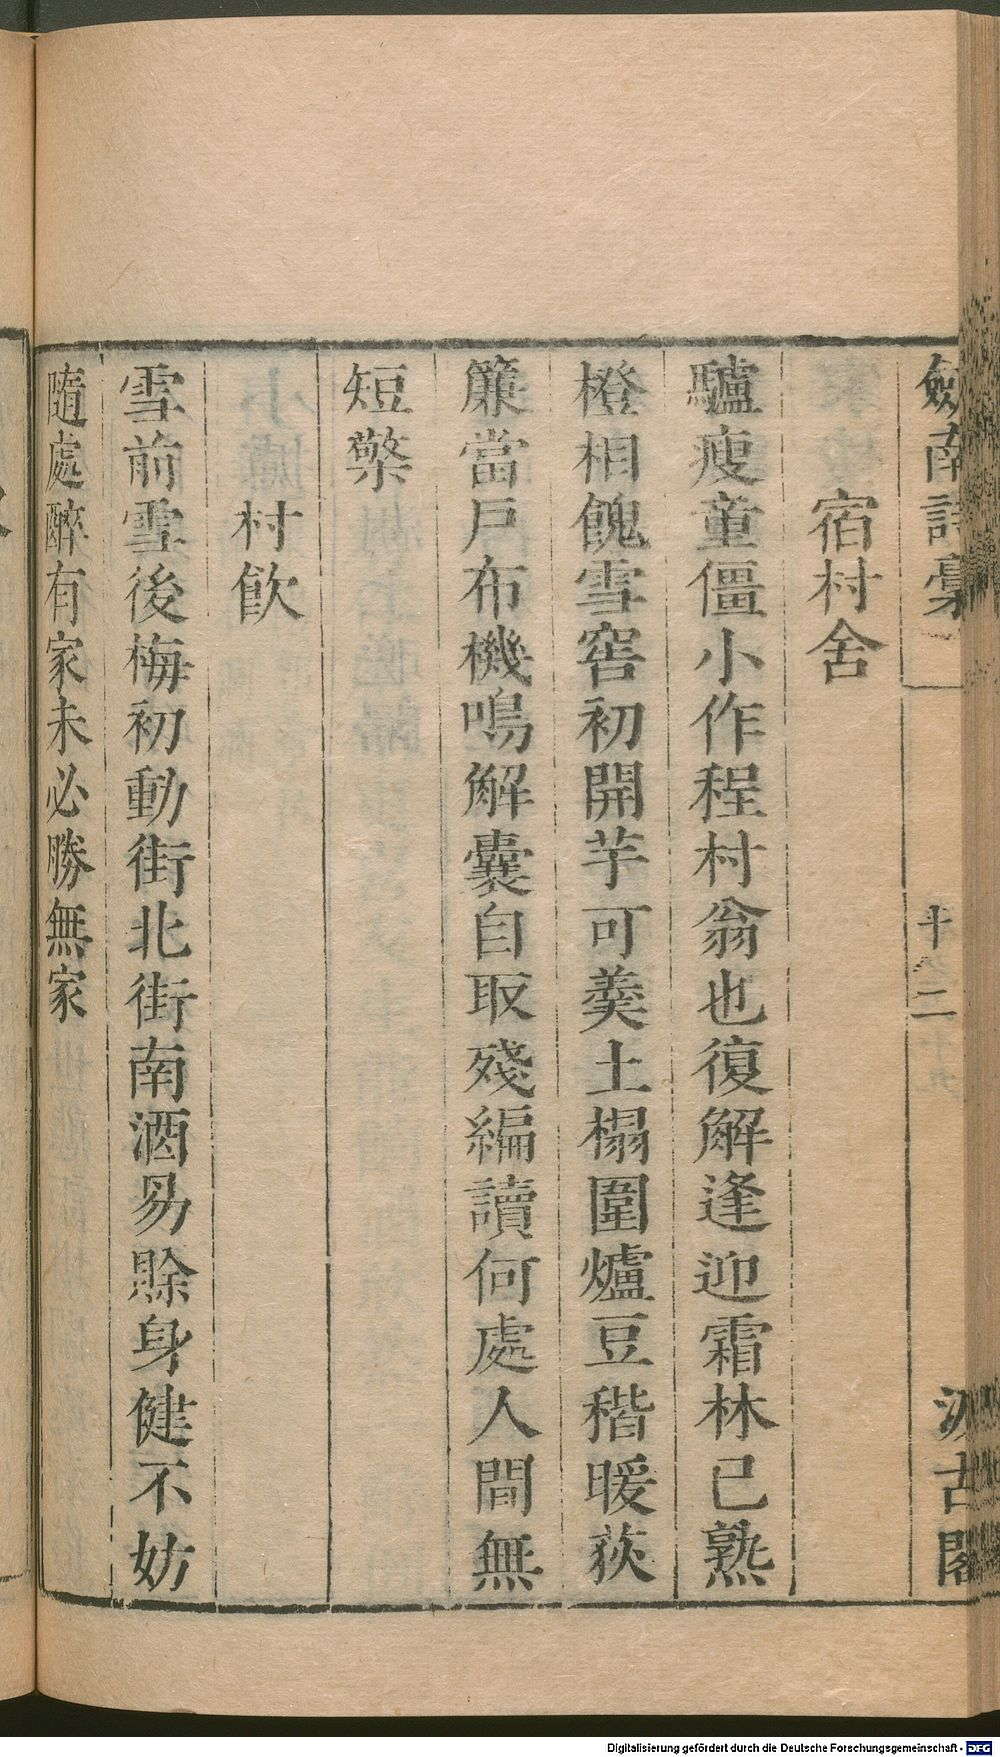 劍南詩稾
十二
汲古閣
宿村舍
驢瘦童僵小作程村翁也復解逢迎霜林已熟
橙相餽雪窖初開芋可羹土榻圍爐豆稭暖荻
簾當戶布機鳴解囊自取殘編讀何處人間無
短檠
村飲
雪前雪後梅初動街北街南酒易賒身健不妨
隨處醉有家未必勝無家
Digitalisierung gefördert durch die Deutsche Forschungsgemeinschaft - DFG